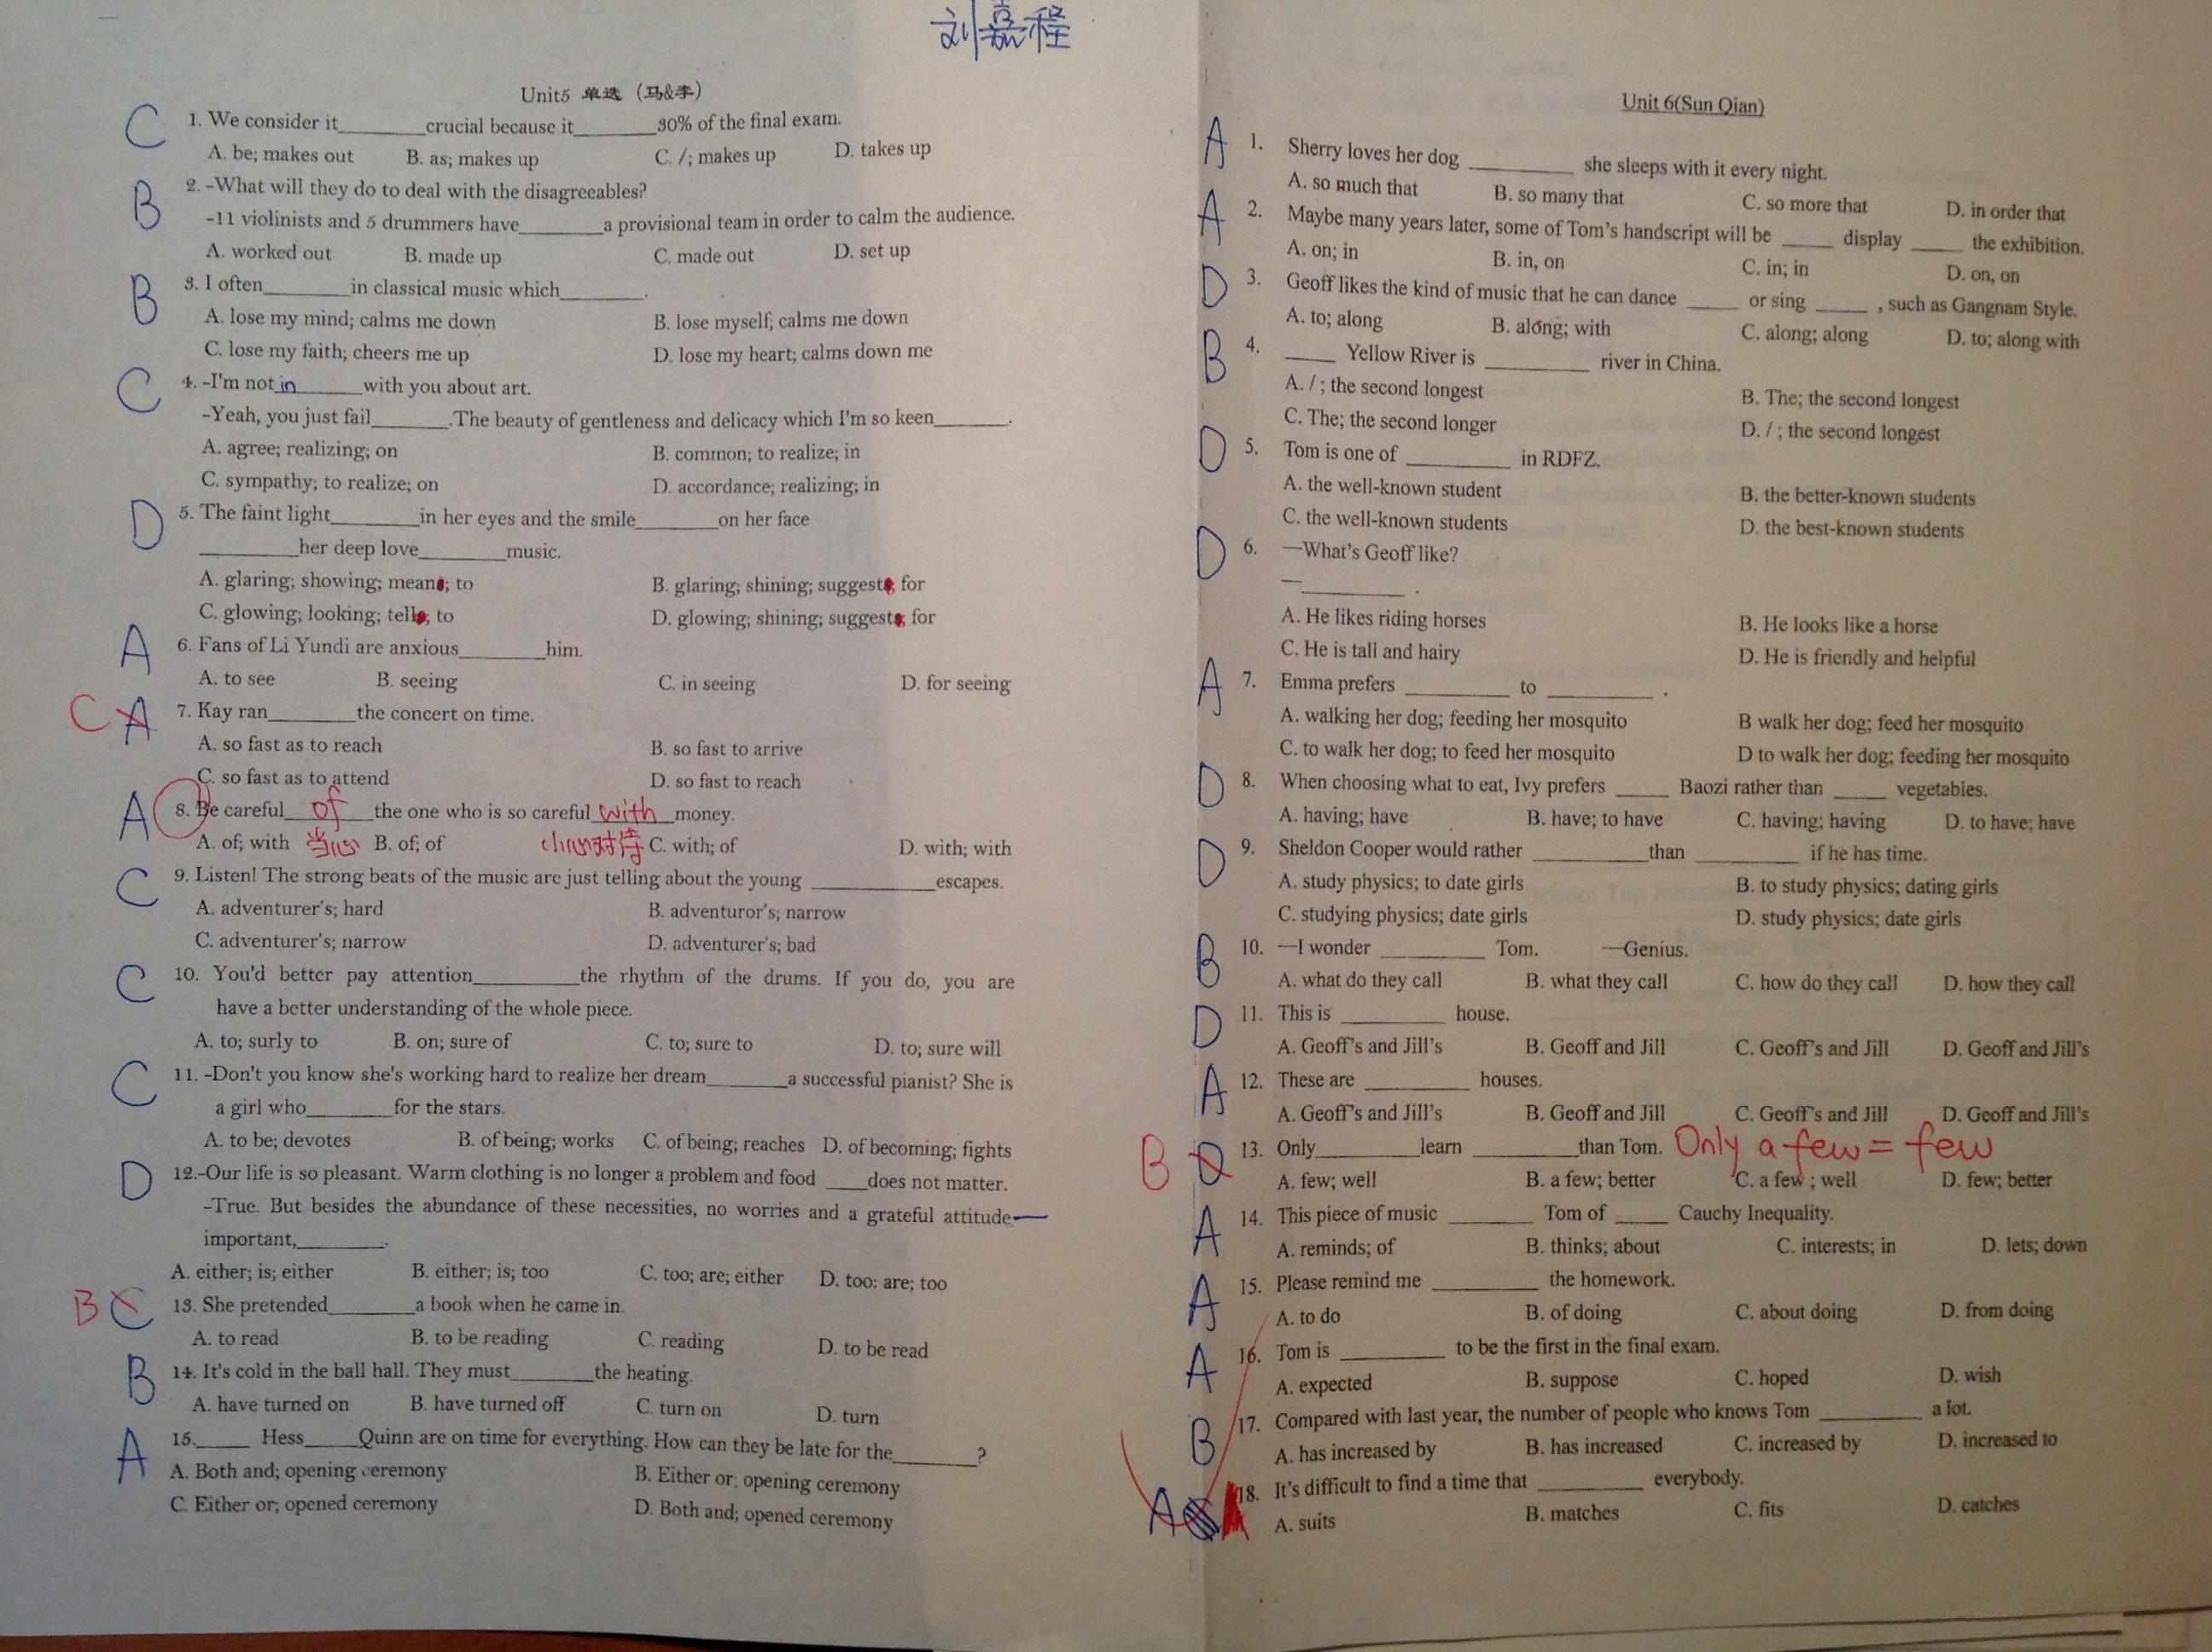 刘嘉程
Unit5 单选 (马&李)
C 1. We consider it________crucial because it________30% of the final exam.
A. be; makes out B. as; makes up C. /; makes up D. takes up
B 2. -What will they do to deal with the disagreeables?
-11 violinists and 5 drummers have________a provisional team in order to calm the audience.
A. worked out B. made up C. made out D. set up
B 3. I often________in classical music which________.
A. lose my mind; calms me down B. lose myself; calms me down
C. lose my faith; cheers me up D. lose my heart; calms down me
C 4. -I'm not in______with you about art.
-Yeah, you just fail_______.The beauty of gentleness and delicacy which I'm so keen_______.
A. agree; realizing; on B. common; to realize; in
C. sympathy; to realize; on D. accordance; realizing; in
D 5. The faint light________in her eyes and the smile________on her face
_________her deep love________music.
A. glaring; showing; means; to B. glaring; shining; suggests; for
C. glowing; looking; tells; to D. glowing; shining; suggests; for
A 6. Fans of Li Yundi are anxious________him.
A. to see B. seeing C. in seeing D. for seeing
C A 7. Kay ran________the concert on time.
A. so fast as to reach B. so fast to arrive
C. so fast as to attend D. so fast to reach
A 8. Be careful of the one who is so careful with money.
A. of; with 当心 B. of; of 小心对待 C. with; of D. with; with
C 9. Listen! The strong beats of the music are just telling about the young ___________escapes.
A. adventurer's; hard B. adventuror's; narrow
C. adventurer's; narrow D. adventurer's; bad
C 10. You'd better pay attention_________the rhythm of the drums. If you do, you are
have a better understanding of the whole piece.
A. to; surly to B. on; sure of C. to; sure to D. to; sure will
C 11. -Don't you know she's working hard to realize her dream_______a successful pianist? She is
a girl who________for the stars.
A. to be; devotes B. of being; works C. of being; reaches D. of becoming; fights
D 12.-Our life is so pleasant. Warm clothing is no longer a problem and food ____does not matter.
-True. But besides the abundance of these necessities, no worries and a grateful attitude___
important,________.
A. either; is; either B. either; is; too C. too; are; either D. too: are; too
B C 13. She pretended________a book when he came in.
A. to read B. to be reading C. reading D. to be read
B 14. It's cold in the ball hall. They must________the heating.
A. have turned on B. have turned off C. turn on D. turn
A 15._____ Hess_____Quinn are on time for everything. How can they be late for the________?
A. Both and; opening ceremony B. Either or; opening ceremony
C. Either or; opened ceremony D. Both and; opened ceremony
Unit 6(Sun Qian)
A 1. Sherry loves her dog __________ she sleeps with it every night.
A. so much that B. so many that C. so more that D. in order that
A 2. Maybe many years later, some of Tom's handscript will be _____ display _____ the exhibition.
A. on; in B. in, on C. in; in D. on, on
D 3. Geoff likes the kind of music that he can dance _____ or sing _____ , such as Gangnam Style.
A. to; along B. along; with C. along; along D. to; along with
B 4. _____ Yellow River is __________ river in China.
A. / ; the second longest B. The; the second longest
C. The; the second longer D. / ; the second longest
D 5. Tom is one of __________ in RDFZ.
A. the well-known student B. the better-known students
C. the well-known students D. the best-known students
D 6. —What's Geoff like?
— __________ .
A. He likes riding horses B. He looks like a horse
C. He is tall and hairy D. He is friendly and helpful
A 7. Emma prefers __________ to __________ .
A. walking her dog; feeding her mosquito B walk her dog; feed her mosquito
C. to walk her dog; to feed her mosquito D to walk her dog; feeding her mosquito
D 8. When choosing what to eat, Ivy prefers _____ Baozi rather than _____ vegetables.
A. having; have B. have; to have C. having; having D. to have; have
D 9. Sheldon Cooper would rather ___________than __________ if he has time.
A. study physics; to date girls B. to study physics; dating girls
C. studying physics; date girls D. study physics; date girls
B 10. —I wonder __________ Tom. —Genius.
A. what do they call B. what they call C. how do they call D. how they call
D 11. This is __________ house.
A. Geoff's and Jill's B. Geoff and Jill C. Geoff's and Jill D. Geoff and Jill's
A 12. These are __________ houses.
A. Geoff's and Jill's B. Geoff and Jill C. Geoff's and Jill D. Geoff and Jill's
B D 13. Only__________learn __________than Tom. Only a few = few
A. few; well B. a few; better C. a few ; well D. few; better
A 14. This piece of music ________ Tom of _____ Cauchy Inequality.
A. reminds; of B. thinks; about C. interests; in D. lets; down
A 15. Please remind me __________ the homework.
A. to do B. of doing C. about doing D. from doing
A 16. Tom is __________ to be the first in the final exam.
A. expected B. suppose C. hoped D. wish
B 17. Compared with last year, the number of people who knows Tom __________ a lot.
A. has increased by B. has increased C. increased by D. increased to
A 18. It's difficult to find a time that __________ everybody.
A. suits B. matches C. fits D. catches